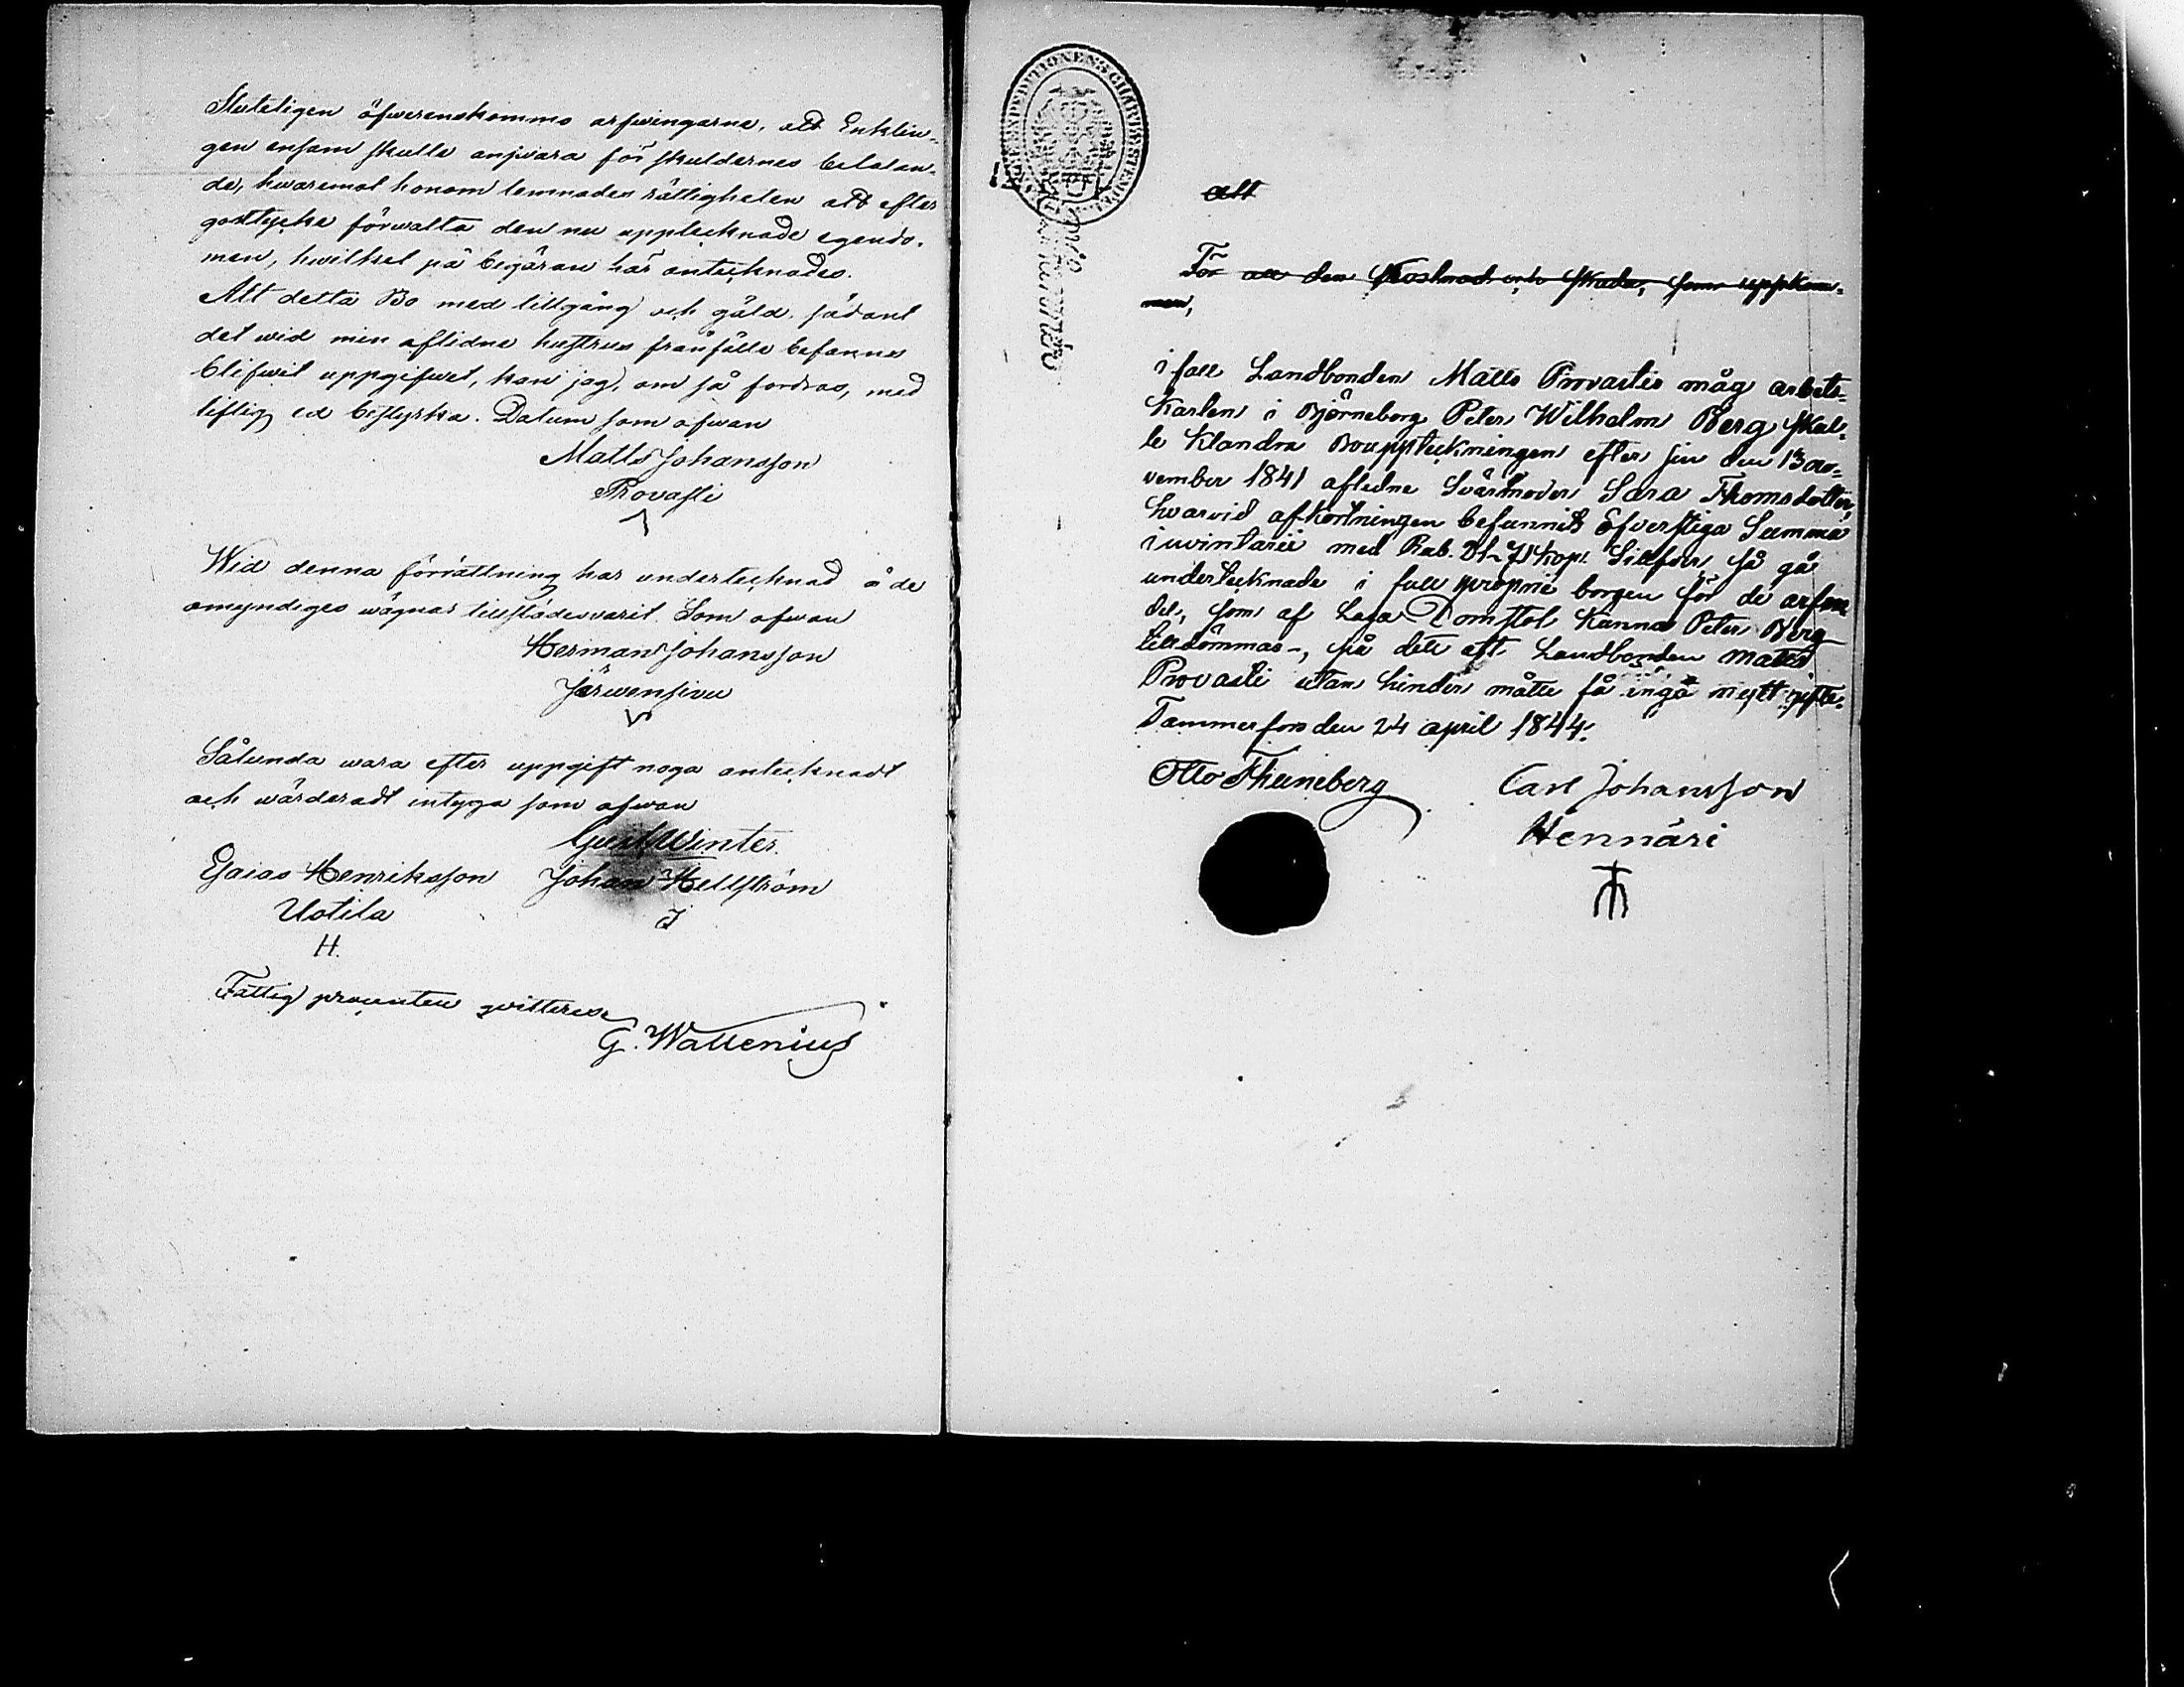 Sluteligen öfwerenskommo arfwingarne, att Enklin-
gen ensam skulle answara för skuldernes betalan-
de, hwaremot honom lemnades rättigheten att efter
godtycke förwalta den nu upptecknade egendo-
men, hwilket på begäran här antecknades.
Att detta Bo med tillgång och gäld, sådant
det wid min aflidne hustrus frånfälle befanns
blifwit uppgifwet, kan jag, om så fordras, med
liflig ed bestyrka. Datum som ofwan
Matts Johansson
Provasti
Wid denna förrättning har undertecknad å de
omyndiges wägnar tillstädeswarit. Som ofwan
Herman Johansson
Järwensivu
Sålunda wara efter uppgift noga antecknadt
och wärderadt intyga som ofwan
Gust Winter.
Esaias Henriksson Johan Hellström
Uotila
H.
Fattig procenten qvitteras
G. Wallenius
att
För all den Kostnad och skada, som uppkom-
men,
i fall Landbonden Matts Provastis måg arbets-
Karlen i Björneborg Peter Wilhelm Berg skul-
le Klandra Bouppteckningen efter sin den 13 no-
vember 1841 aflidne Svärmoder Sara Thomsdotter,
hvarvid afkortningen befunnits öfverstiga Summa
inventarii med Rub. 71 kop. Silfver, så gå
undertecknade i full proprie borgen för de arfve
del, som af Laga Domstol Kunna Peter Berg
tilldömmas, på det att Landbonden Matts
Provasti utan hinder måtte få ingå nytt gifte.
Tammerfors den 24 april 1844.
Otto Thuneberg Carl Johansson
Hennäri